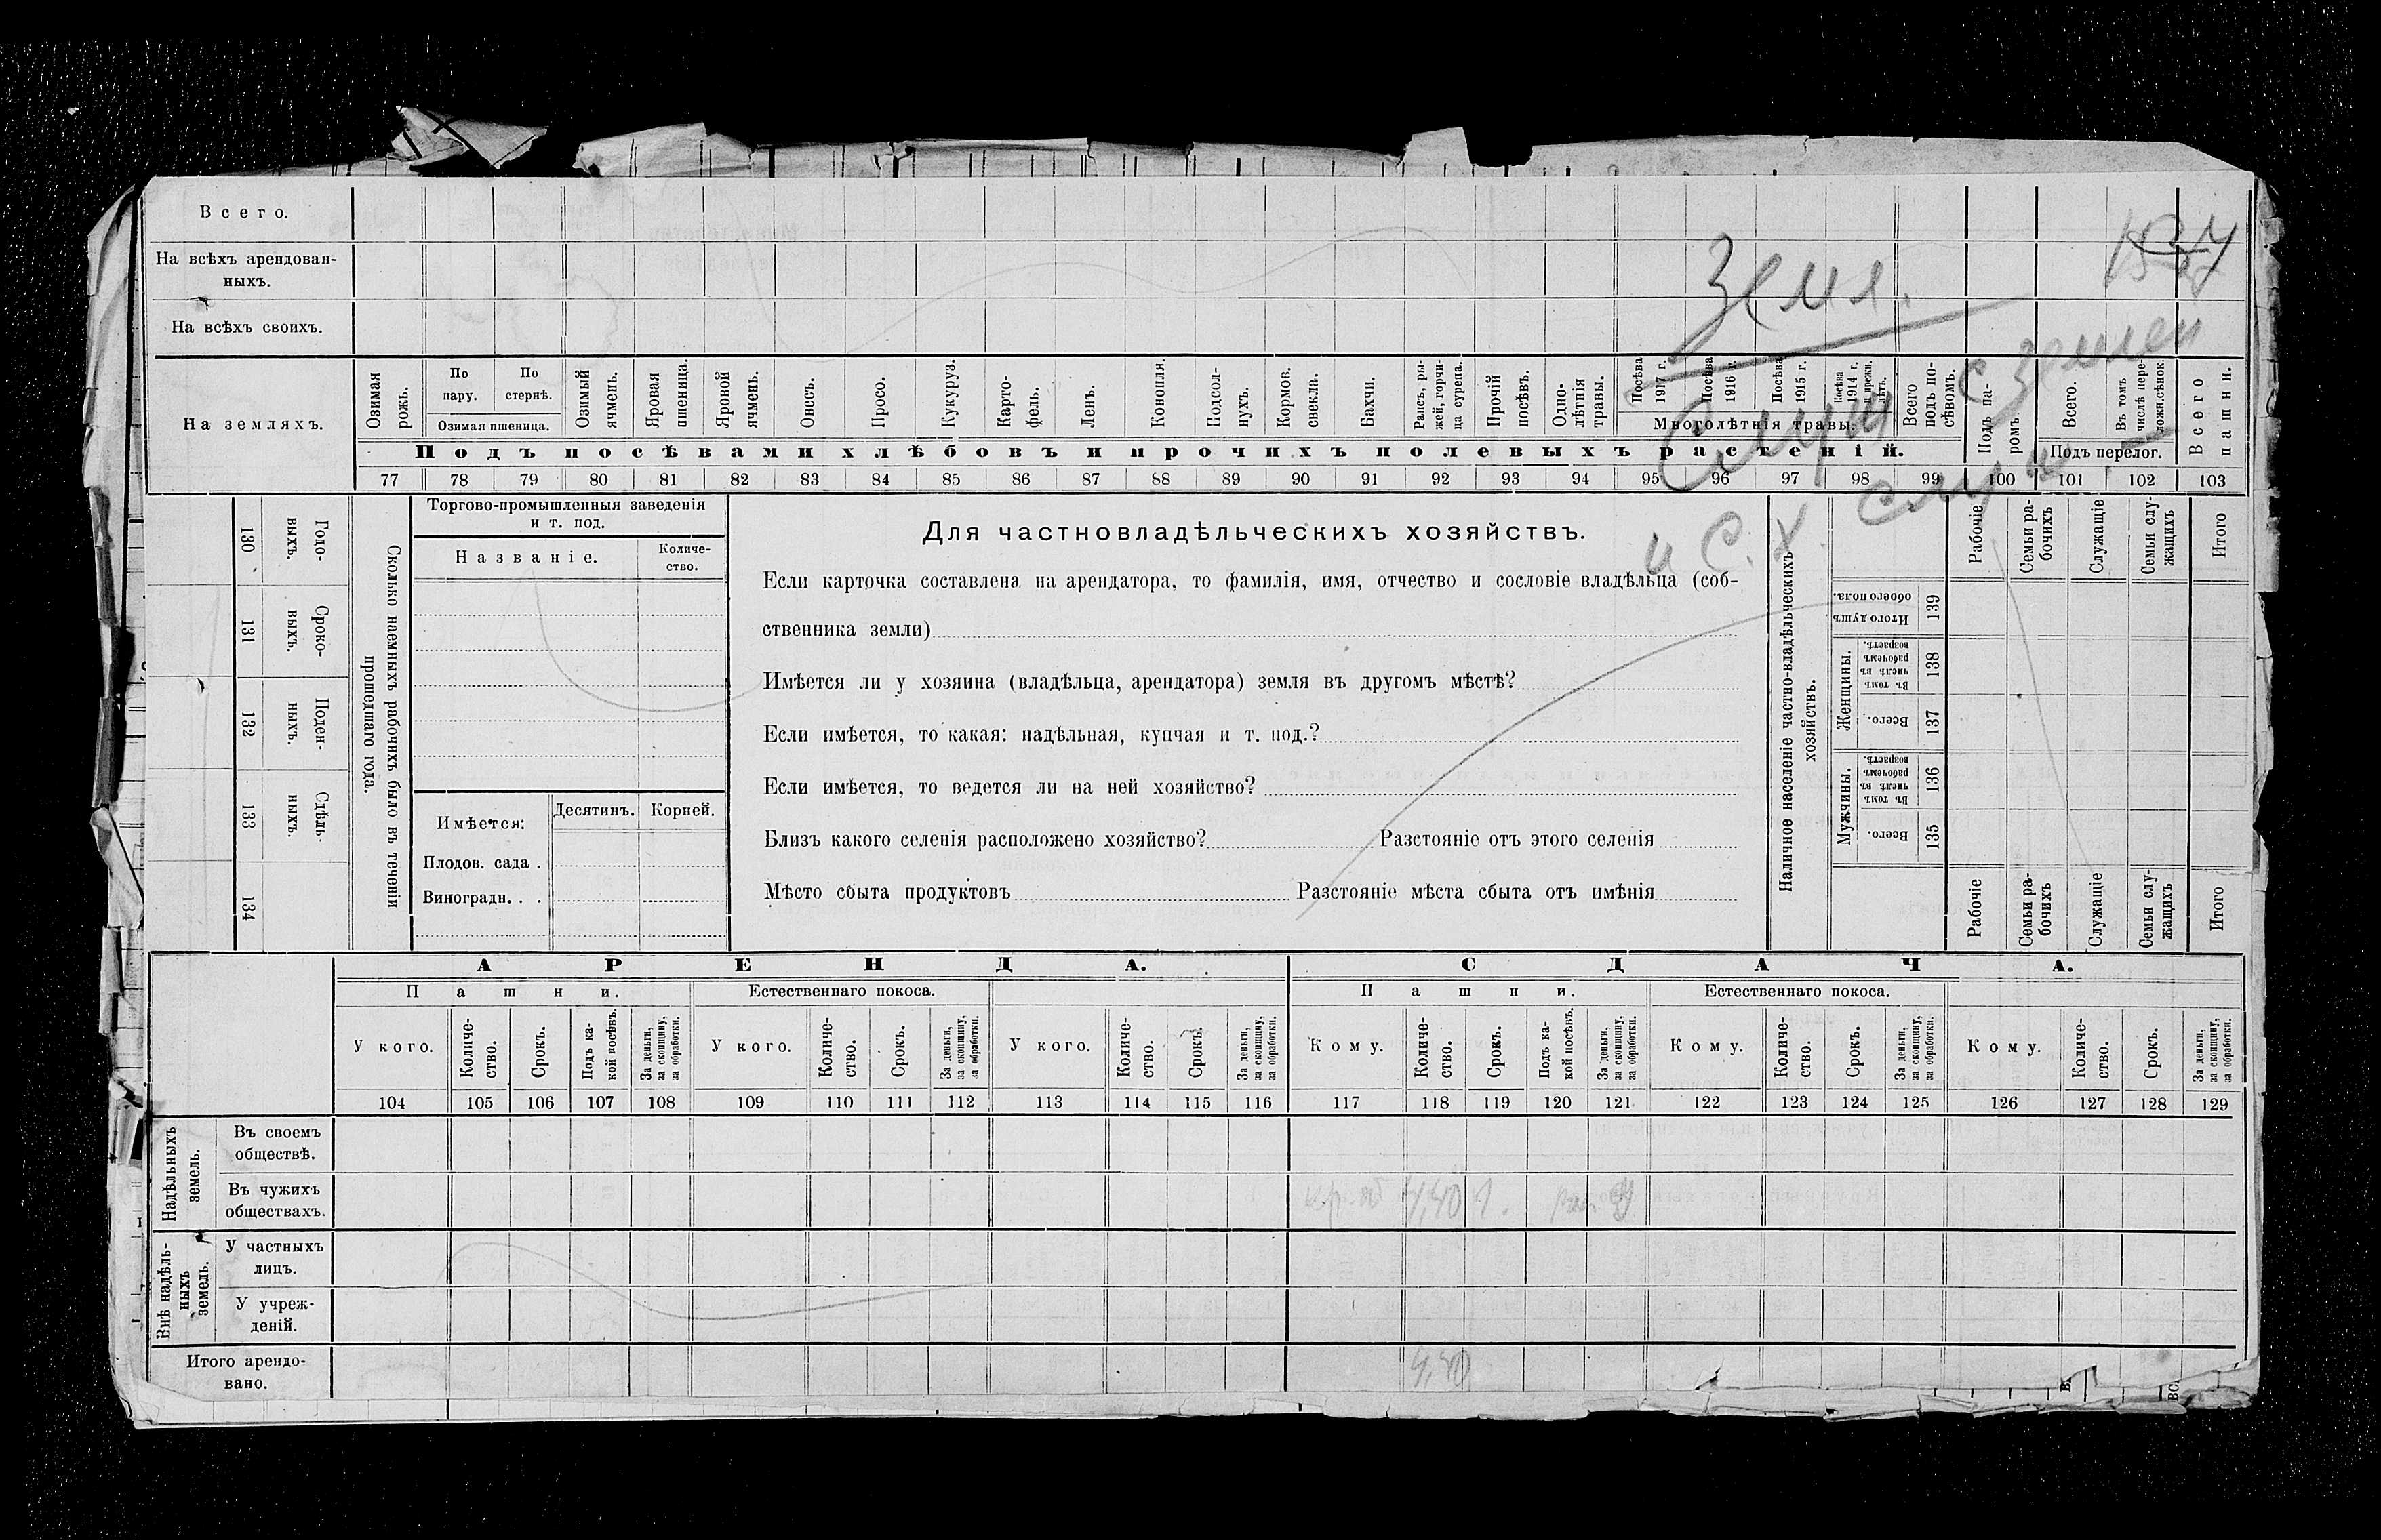 Всего.
На всѣхъ арендован-
ныхъ.
На всѣхъ своихъ.
Земл.
На земляхъ.
Озимая рожь.
По пару.
По стернѣ.
Озимая пшеница.
Озимый ячмень.
Яровая пшеница.
Яровой ячмень.
Овесъ.
Просо.
Кукуруз.
Карто-
фель.
Ленъ.
Конопля.
Подсол-
нухъ.
Кормов. свекла.
Бахчи.
Рапсъ, ры-
жей, горчи-
ца сурепа.
Прочій посѣвъ.
Одно-
лѣтнія травы.
Посѣва 1917 г.
Посѣва 1916 г.
Посѣва 1915 г.
Посѣва 1914 г. и прежн. лѣтъ.
Многолѣтнія травы.
Всего подъ по-
сѣвомъ.
Подъ па-
ромъ.
Всего.
Въ томъ числѣ пере-
ложн. сѣнок.
Подъ перелог.
Всего пашни.
Подъ посѣвами хлѣбовъ и прочихъ полевыхъ растеній.
77 78 79 80 81 82 83 84 85 86 87 88 89 90 91 92 93 94 95 96 97 98 99 100 101 102 103
Служ
и С. Х.
130 Годо-
выхъ.
131 Сроко-
выхъ.
132 Поден-
ныхъ.
133 Сдѣль-
ныхъ.
134
Сколько наемныхъ рабочихъ было въ теченіи
прошедшаго года.
Торгово-промышленныя заведенія
и т. под.
Названіе.
Количе-
ство.
Имѣется:
Десятинъ.
Корней.
Плодов. сада .
Виноградн. . .
Для частновладѣльческихъ хозяйствъ.
Если карточка составлена на арендатора, то фамилія, имя, отчество и сословіе владѣльца (соб-
ственника земли)
Имѣется ли у хозяина (владѣльца, арендатора) земля въ другомъ мѣстѣ?
Если имѣется, то какая: надѣльная, купчая и т. под.?
Если имѣется, то ведется ли на ней хозяйство?
Близъ какого селенія расположено хозяйство? Разстояніе отъ этого селенія
Мѣсто сбыта продуктовъ Разстояніе мѣста сбыта отъ имѣнія
Наличное населеніе частно-владѣльческихъ
хозяйствъ.
Рабочіе
Семьи ра-
бочихъ
Служащіе
Семьи слу-
жащихъ
Итого
Итого душъ обоего пола. 139
Женщины.
Въ томъ числѣ въ рабочемъ возрастѣ. 138
Всего. 137
Мужчины.
Въ томъ числѣ въ рабочемъ возрастѣ. 136
Всего. 135
Рабочіе
Семьи ра-
бочихъ
Служащіе
Семьи слу-
жащихъ
Итого
АРЕНДА.
СДАЧА.
Пашни.
Естественнаго покоса.
Пашни.
Естественнаго покоса.
У кого.
Количе-
ство.
Срокъ.
Подъ ка-
кой посѣвъ.
За деньги, за скопщину, за обработки.
У кого.
Количе-
ство.
Срокъ.
За деньги, за скопщину, за обработки.
У кого.
Количе-
ство.
Срокъ.
За деньги, за скопщину, за обработки.
Кому.
Количе-
ство.
Срокъ.
Подъ ка-
кой посѣвъ.
За деньги, за скопщину, за обработки.
Кому.
Количе-
ство.
Срокъ.
За деньги, за скопщину, за обработки.
Кому.
Количе-
ство.
Срокъ.
За деньги, за скопщину, за обработки.
104 105 106 107 108 109 110 111 112 113 114 115 116 117 118 119 120 121 122 123 124 125 126 127 128 129
Надѣльныхъ земель.
Въ своемъ
обществѣ.
Въ чужихъ
обществахъ.
4,40 1.
Внѣ надѣль-
ныхъ земель.
У частныхъ
лицъ.
У учреж-
деній.
Итого арендо-
вано.
4,40